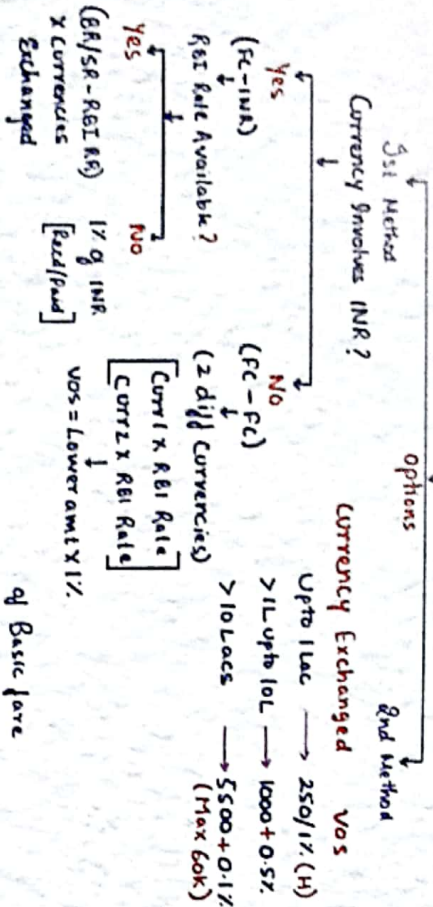 options
Ist Method
Currency Involves INR?
Yes
(FC-INR)
RBI Rate Available?
Yes
(BR/SR-RBI RR)
x currencies
Exchanged
No
1% of INR
[Recd/Paid]
No
(FC-FC)
(2 diff Currencies)
[Curr1 x RBI Rate
Curr2 x RBI Rate]
VOS = Lower amt x 1%.
2nd Method
Currency Exchanged VOS
Upto 1 Lac → 250/1% (H)
>1L upto 10L → 1000+0.5%
>10 Lacs → 5500+0.1%
(Max 60K)
of Basic fare